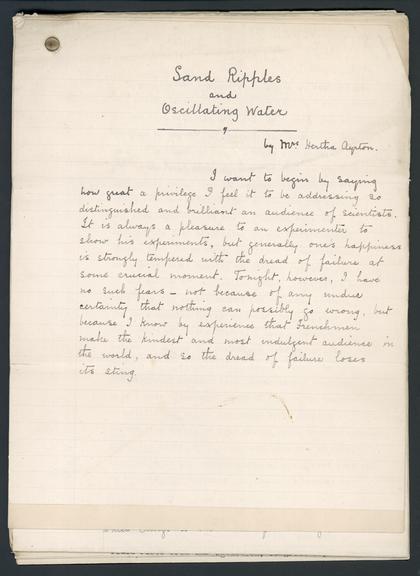 Sand Ripples
and
Oscillating Water
by Mrs Hertha Ayrton.
I want to begin by saying
how great a privilege I feel it to be addressing so
distinguished and brilliant an audience of scientists.
It is always a pleasure to an experimenter to
show his experiments, but generally one's happiness
is strongly tempered with the dread of failure at
some crucial moment. Tonight, however, I have
no such fears – not because of any undue
certainty that nothing can possibly go wrong, but
because I know by experience that Frenchmen
make the kindest and most indulgent audience in
the world, and so the dread of failure loses
its sting.